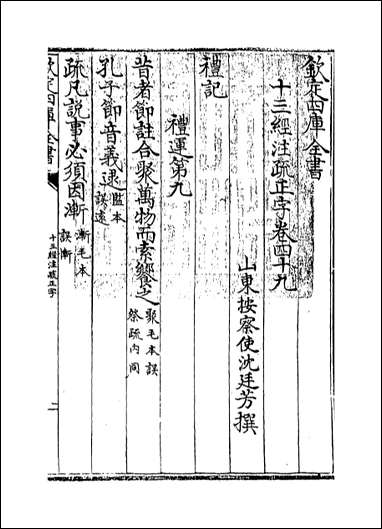 欽定四庫全書
十三經注疏正字卷四十九
山東按察使沈廷芳撰
禮記
禮運第九
昔者節註合聚萬物而索饗之
聚毛本誤
祭疏内同
孔子節音義逮
監本
誤遠
疏凡說事必須因漸
漸毛本
誤漸
欽定四庫全書
十三經注疏正字
二